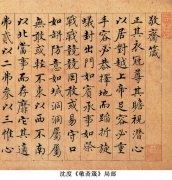 敬齋箴
正其衣冠尊其瞻視潛心
以居對越上帝足容必重
手容必恭擇地而蹈折旋
蟻封出門如賓承事如祭
戰戰兢兢罔敢或易守口
如瓶防意如城洞洞屬屬
無敢或輕不東以西不南
以北當事而存靡他其適
弗貳以二弗參以三惟心
沈度《敬斋箴》局部